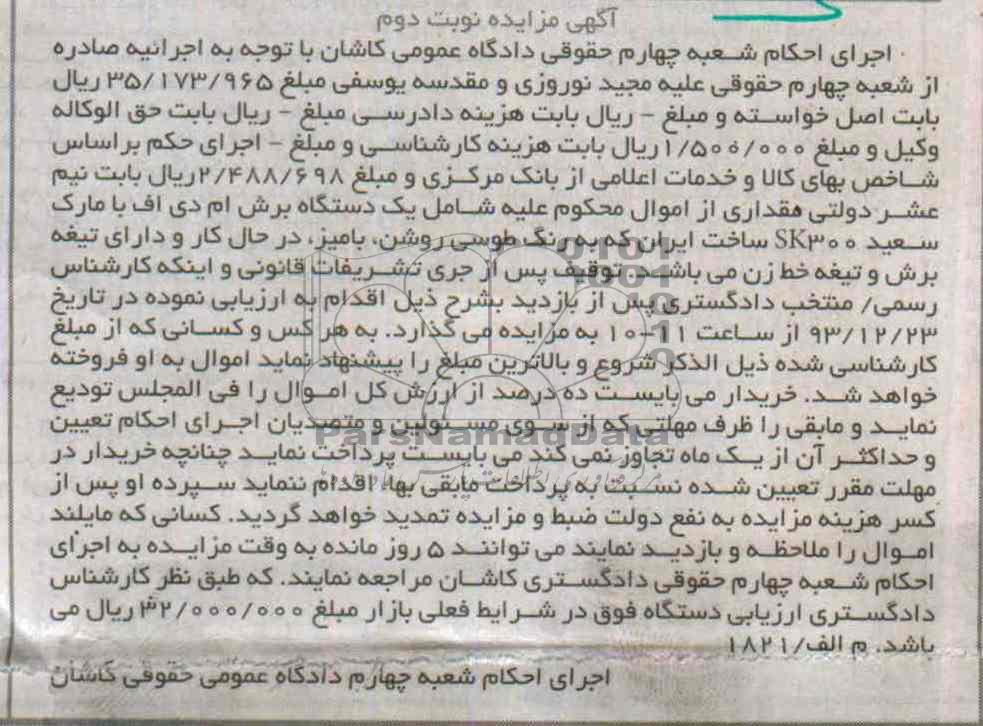 آگهی مزایده نوبت دوم
اجرای احکام شعبه چهارم حقوقی دادگاه عمومی کاشان با توجه به اجرائیه صادره
از شعبه چهارم حقوقی علیه مجید نوروزی و مقدسه یوسفی مبلغ ۳۵/۱۷۳/۹۶۵ ریال
بابت اصل خواسته و مبلغ – ریال بابت هزینه دادرسی مبلغ – ریال بابت حق الوکاله
وکیل و مبلغ ۱/۵۰۰/۰۰۰ ریال بابت هزینه کارشناسی و مبلغ – اجرای حکم براساس
شاخص بهای کالا و خدمات اعلامی از بانک مرکزی و مبلغ ۲/۴۸۸/۶۹۸ریال بابت نیم
عشر دولتی مقداری از اموال محکوم علیه شامل یک دستگاه برش ام دی اف با مارک
سعید SK۳۰۰ ساخت ایران که به رنگ طوسی روشن، بامیز، در حال کار و دارای تیغه
برش و تیغه خط زن می باشد. توقیف پس از جری تشریفات قانونی و اینکه کارشناس
رسمی/ منتخب دادگستری پس از بازدید بشرح ذیل اقدام به ارزیابی نموده در تاریخ
۹۳/۱۲/۲۳ از ساعت ۱۱–۱۰ به مزایده می گذارد. به هر کس و کسانی که از مبلغ
کارشناسی شده ذیل الذکر شروع و بالاترین مبلغ را پیشنهاد نماید اموال به او فروخته
خواهد شد. خریدار می بایست ده درصد از ارزش کل اموال را فی المجلس تودیع
نماید و مابقی را ظرف مهلتی که از سوی مسئولین و متصدیان اجرای احکام تعیین
و حداکثر آن از یک ماه تجاوز نمی کند می بایست پرداخت نماید چنانچه خریدار در
مهلت مقرر تعیین شده نسبت به پرداخت مابقی بهاء اقدام ننماید سپرده او پس از
کسر هزینه مزایده به نفع دولت ضبط و مزایده تمدید خواهد گردید. کسانی که مایلند
اموال را ملاحظه و بازدید نمایند می توانند ۵ روز مانده به وقت مزایده به اجرای
احکام شعبه چهارم حقوقی دادگستری کاشان مراجعه نمایند. که طبق نظر کارشناس
دادگستری ارزیابی دستگاه فوق در شرایط فعلی بازار مبلغ ۳۲/۰۰۰/۰۰۰ ریال می
باشد. م الف/۱۸۲۱
اجرای احکام شعبه چهارم دادگاه عمومی حقوقی کاشان
ParsNamadData